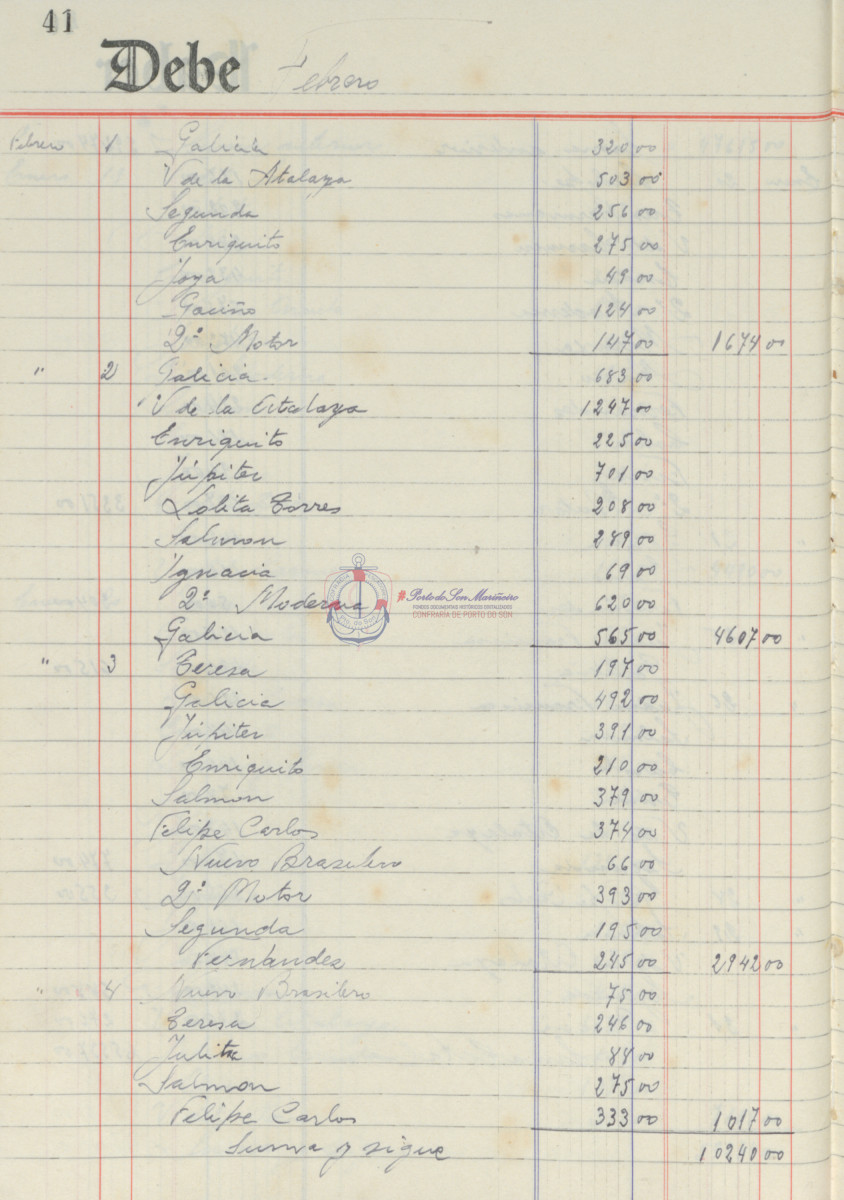 41
Debe Febrero
Febrero 1 Galicia 320 00
V de la Atalaya 503 00
Segunda 256 00
Enriquito 275 00
Joya 49 00
Gaciño 124 00
2ª Motor 147 00 1674 00
" 2 Galicia. 683 00
V de la Atalaya 1247 00
Enriquito 225 00
Júpiter 701 00
Lolita Torres 208 00
Salmon 289 00
Ignacia 69 00
2ª Moderna 620 00
#Porto do Son Mariñeiro
FONDOS DOCUMENTAIS HISTÓRICOS DIXITALIZADOS
CONFRARIA DE PORTO DO SON
Galicia 565 00 4607 00
" 3 Teresa 197 00
Galicia 492 00
Júpiter 391 00
Enriquito 210 00
Salmon 379 00
Felipe Carlos 374 00
Nuevo Brasilero 66 00
2ª Motor 393 00
Segunda 195 00
Fernandez 245 00 2942 00
" 4 Nuevo Brasilero 75 00
Teresa 246 00
Julita 88 00
Salmon 275 00
Felipe Carlos 333 00 1017 00
Suma y sigue 10240 00